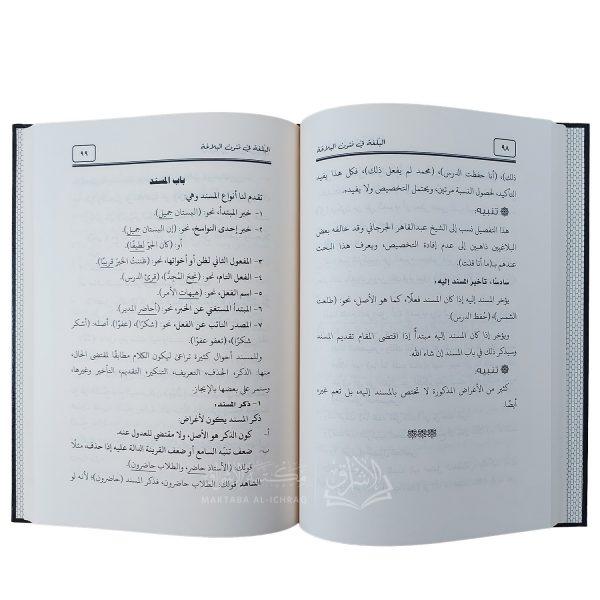 ٩٨
البلغة في فنون البلاغة
ذلك)، (أنا حفظت الدرس)، (محمد لم يفعل ذلك)، فكل هذا يفيد
التأكيد، لحصول النسبة مرتين، ويحتمل التخصيص ولا يفيده.
تنبيه:
هذا التفصيل نسب إلى الشيخ عبدالقاهر الجرجاني وقد خالفه بعض
البلاغيين ذاهبين إلى عدم إفادة التخصيص، ويعرف هذا البحث
عندهم بـ(ما أنا قلت).
سادسًا: تأخير المسند إليه:
يؤخر المسند إليه إذا كان المسند فعلًا، كما هو الأصل، نحو: (طلعت
الشمس)، (حُفظ الدرس).
ويؤخر إذا كان المسند إليه مبتدأً إذا اقتضى المقام تقديم المسند
وسيذكر ذلك في باب المسند إن شاء الله.
تنبيه:
كثير من الأغراض المذكورة لا تختص بالمسند إليه، بل تعم غيره
أيضًا.
البلغة في فنون البلاغة
٩٩
باب المسند
تقدم لنا أنواع المسند وهي:
١- خبر المبتدأ، نحو: (البستان جميل).
٢- خبر إحدى النواسخ، نحو: (إن البستان جميل)
أو: (كان الجو لطيفًا).
٣- المفعول الثاني لظن أو أخواتها، نحو: (ظننتُ الخيرَ قريبًا).
٤- الفعل التام، نحو: (نجح المُجدّ)، (قرئ الدرس).
٥- اسم الفعل، نحو: (هيهات الأمر).
٦- المبتدأ المستغني عن الخبر، نحو: (أحاضر المدير).
٧- المصدر النائب عن الفعل، نحو: (شكرًا)، (عفوًا)، أصله: (أشكر
شكرًا)، (تعفو عفوًا).
وللمسند أحوال كثيرة تراعى ليكون الكلام مطابقًا لمقتضى الحال،
منها: الذكر، الحذف، التعريف، التنكير، التقديم، التأخير وغيرها،
وسنمر على بعضها بالإيجاز.
١- ذكر المسند:
ذكر المسند يكون لأغراض:
أ- كون الذكر هو الأصل، ولا مقتضي للعدول عنه.
ب- ضعف تنبّه السامع أو ضعف القرينة الدالة عليه إذا حذف، مثلًا
قولك: (الأستاذ حاضر، والطلاب حاضرون).
الشاهد قولك: الطلاب حاضرون، فذكر المسند (حاضرون)؛ لأنه لو
مكتبة الإشراق
MAKTABA AL-ICHRAQ